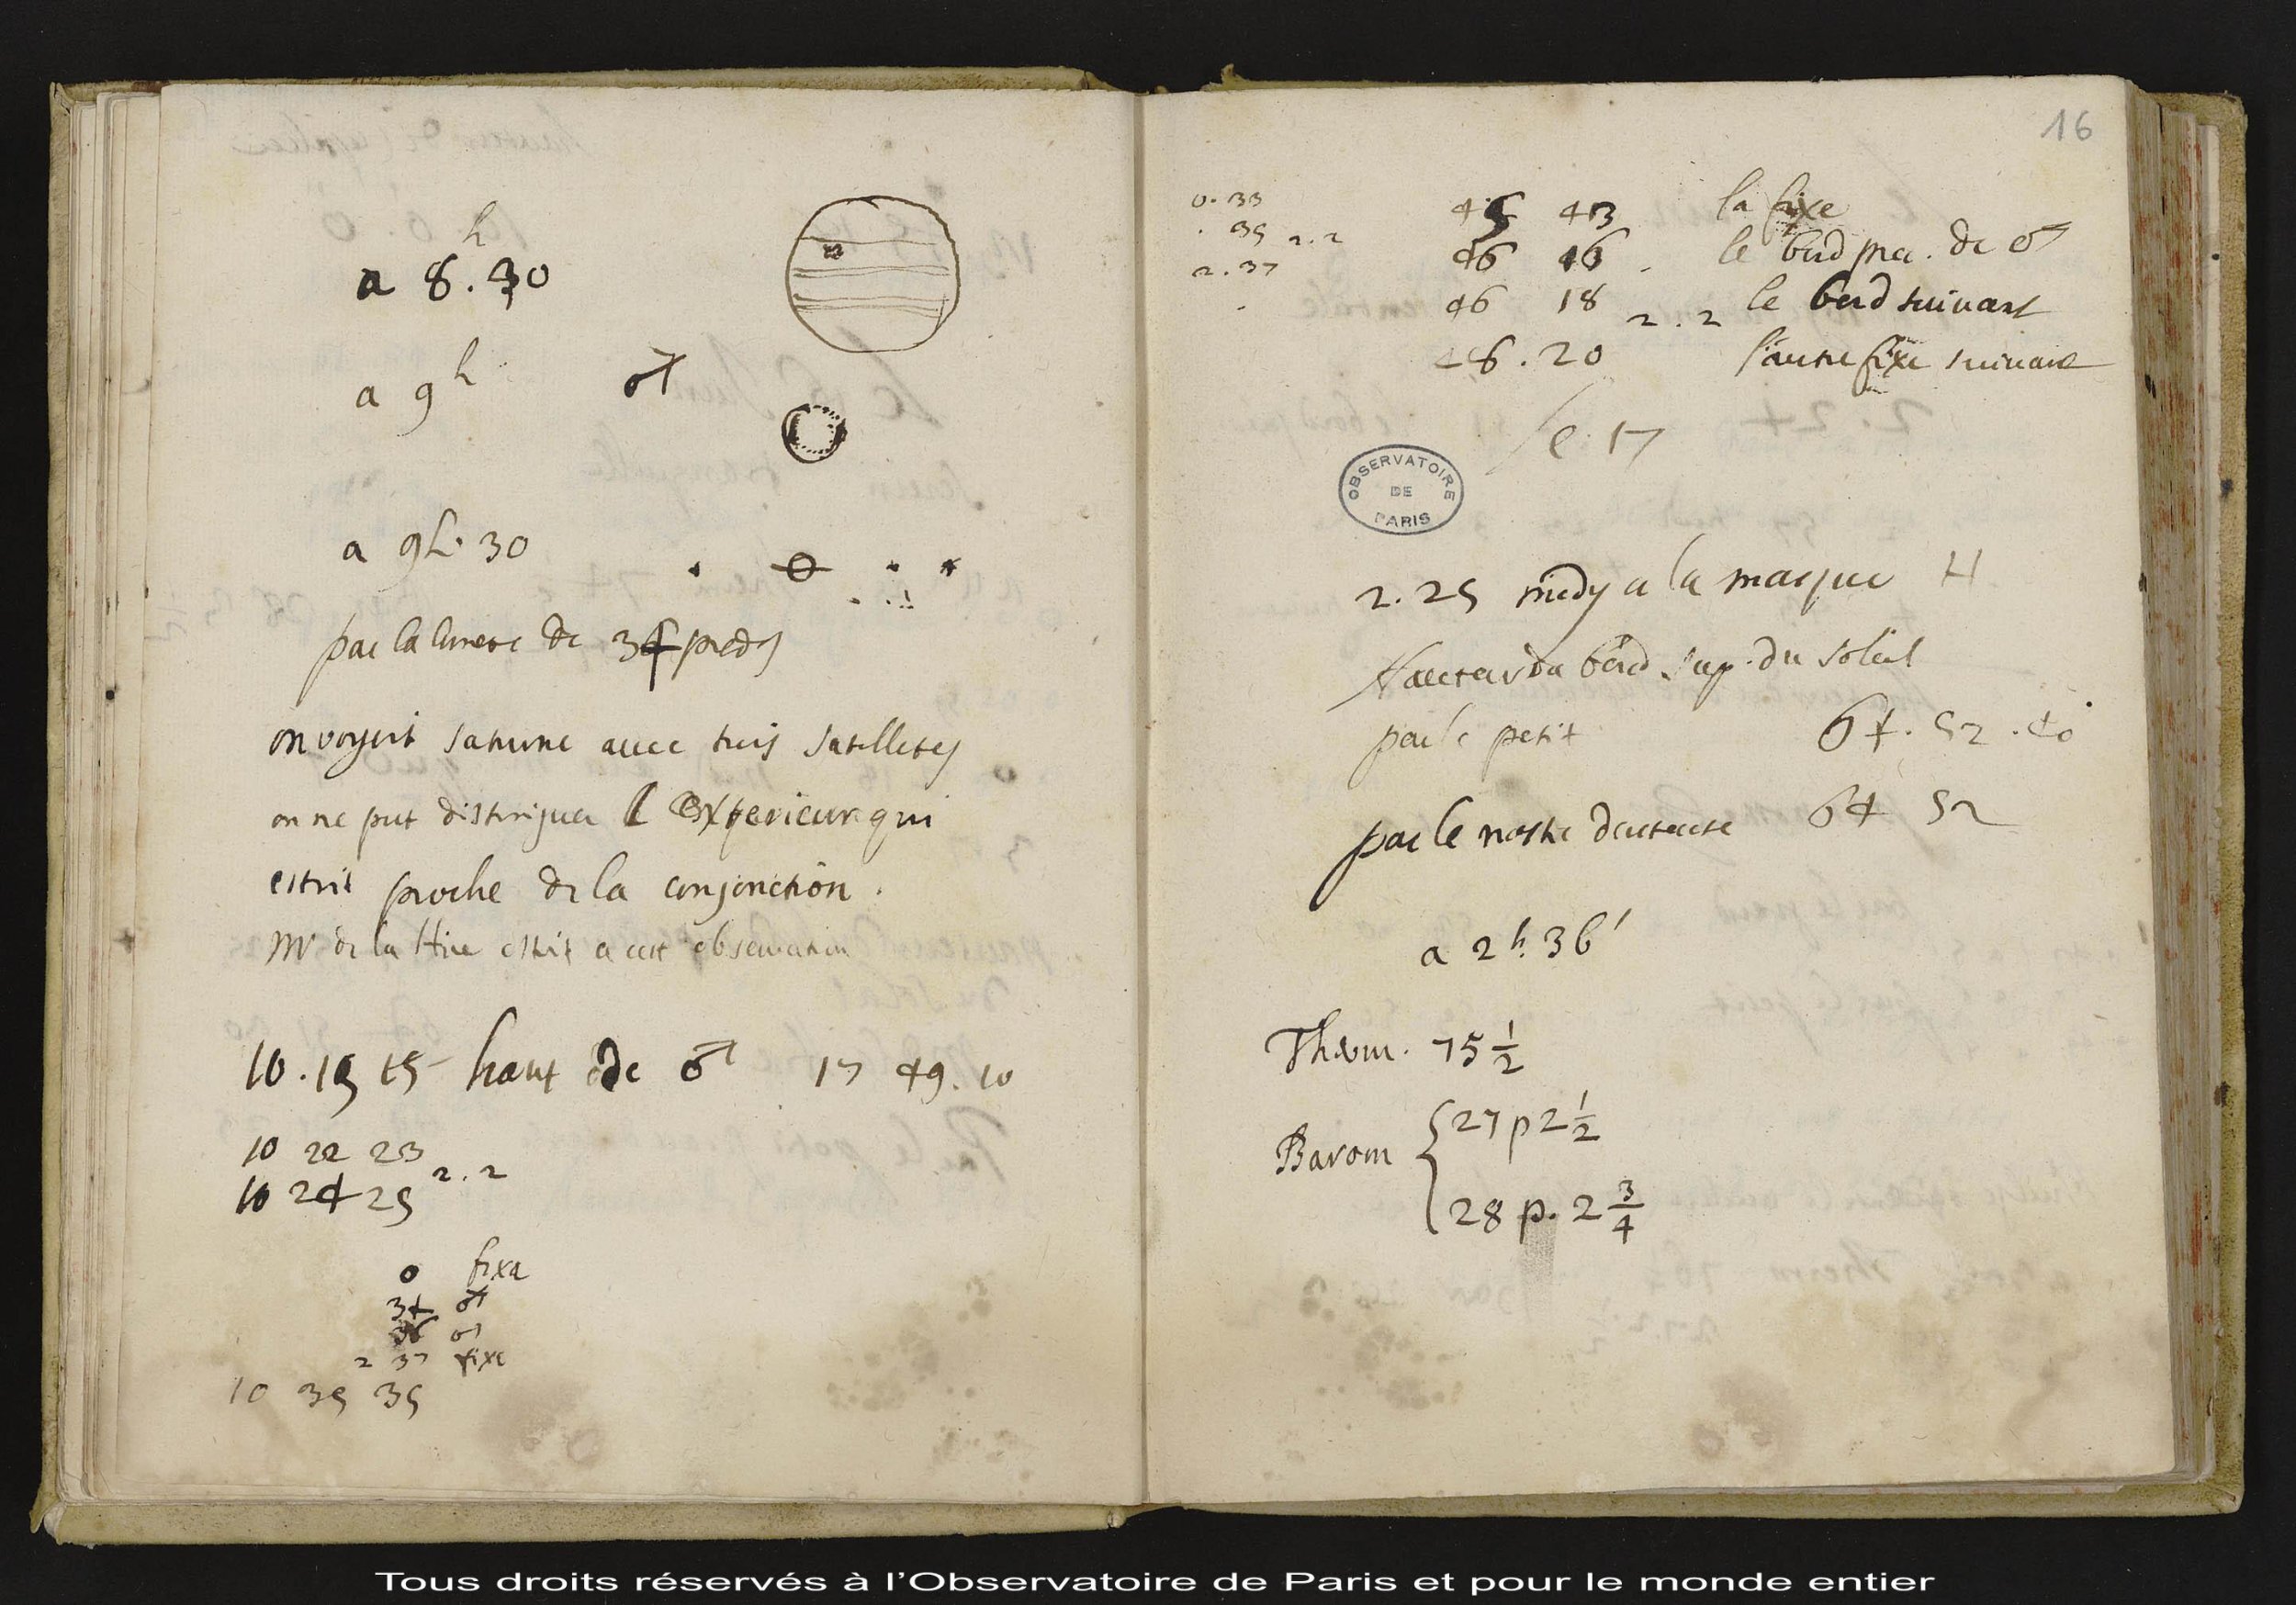 a 8.h 30
a 9h ♂
a 9h. 30
par la lunete de 34 pieds
on voyoit saturne avec trois satellites
on ne put distinguer l'exterieur qui
estoit proche de la conjonction.
Mr de la Hire estoit a cette observation
10. 19 15 haut de ♂ 17 49. 10
10 22 23
2. 2
10 24 25
0 fixa
34 ♂
36 ♂
2 37 fixe
10 35 35
16
0. 33 45 43 la fixe
. 35 2. 2 46 16. le bord pre. de ♂
2. 37 46 18 2. 2 le bord suivant
. 48. 20 l'autre fixe suivant
le 17
OBSERVATOIRE DE PARIS
2. 25 midy a la marque H
Hauteur du bord sup. du soleil
par le petit 64. 52. 40
par le nostre 64 52
a 2h. 36'
Therm. 75 1/2
Barom { 27 p 2 1/2
28 p. 2 3/4
Tous droits réservés à l'Observatoire de Paris et pour le monde entier